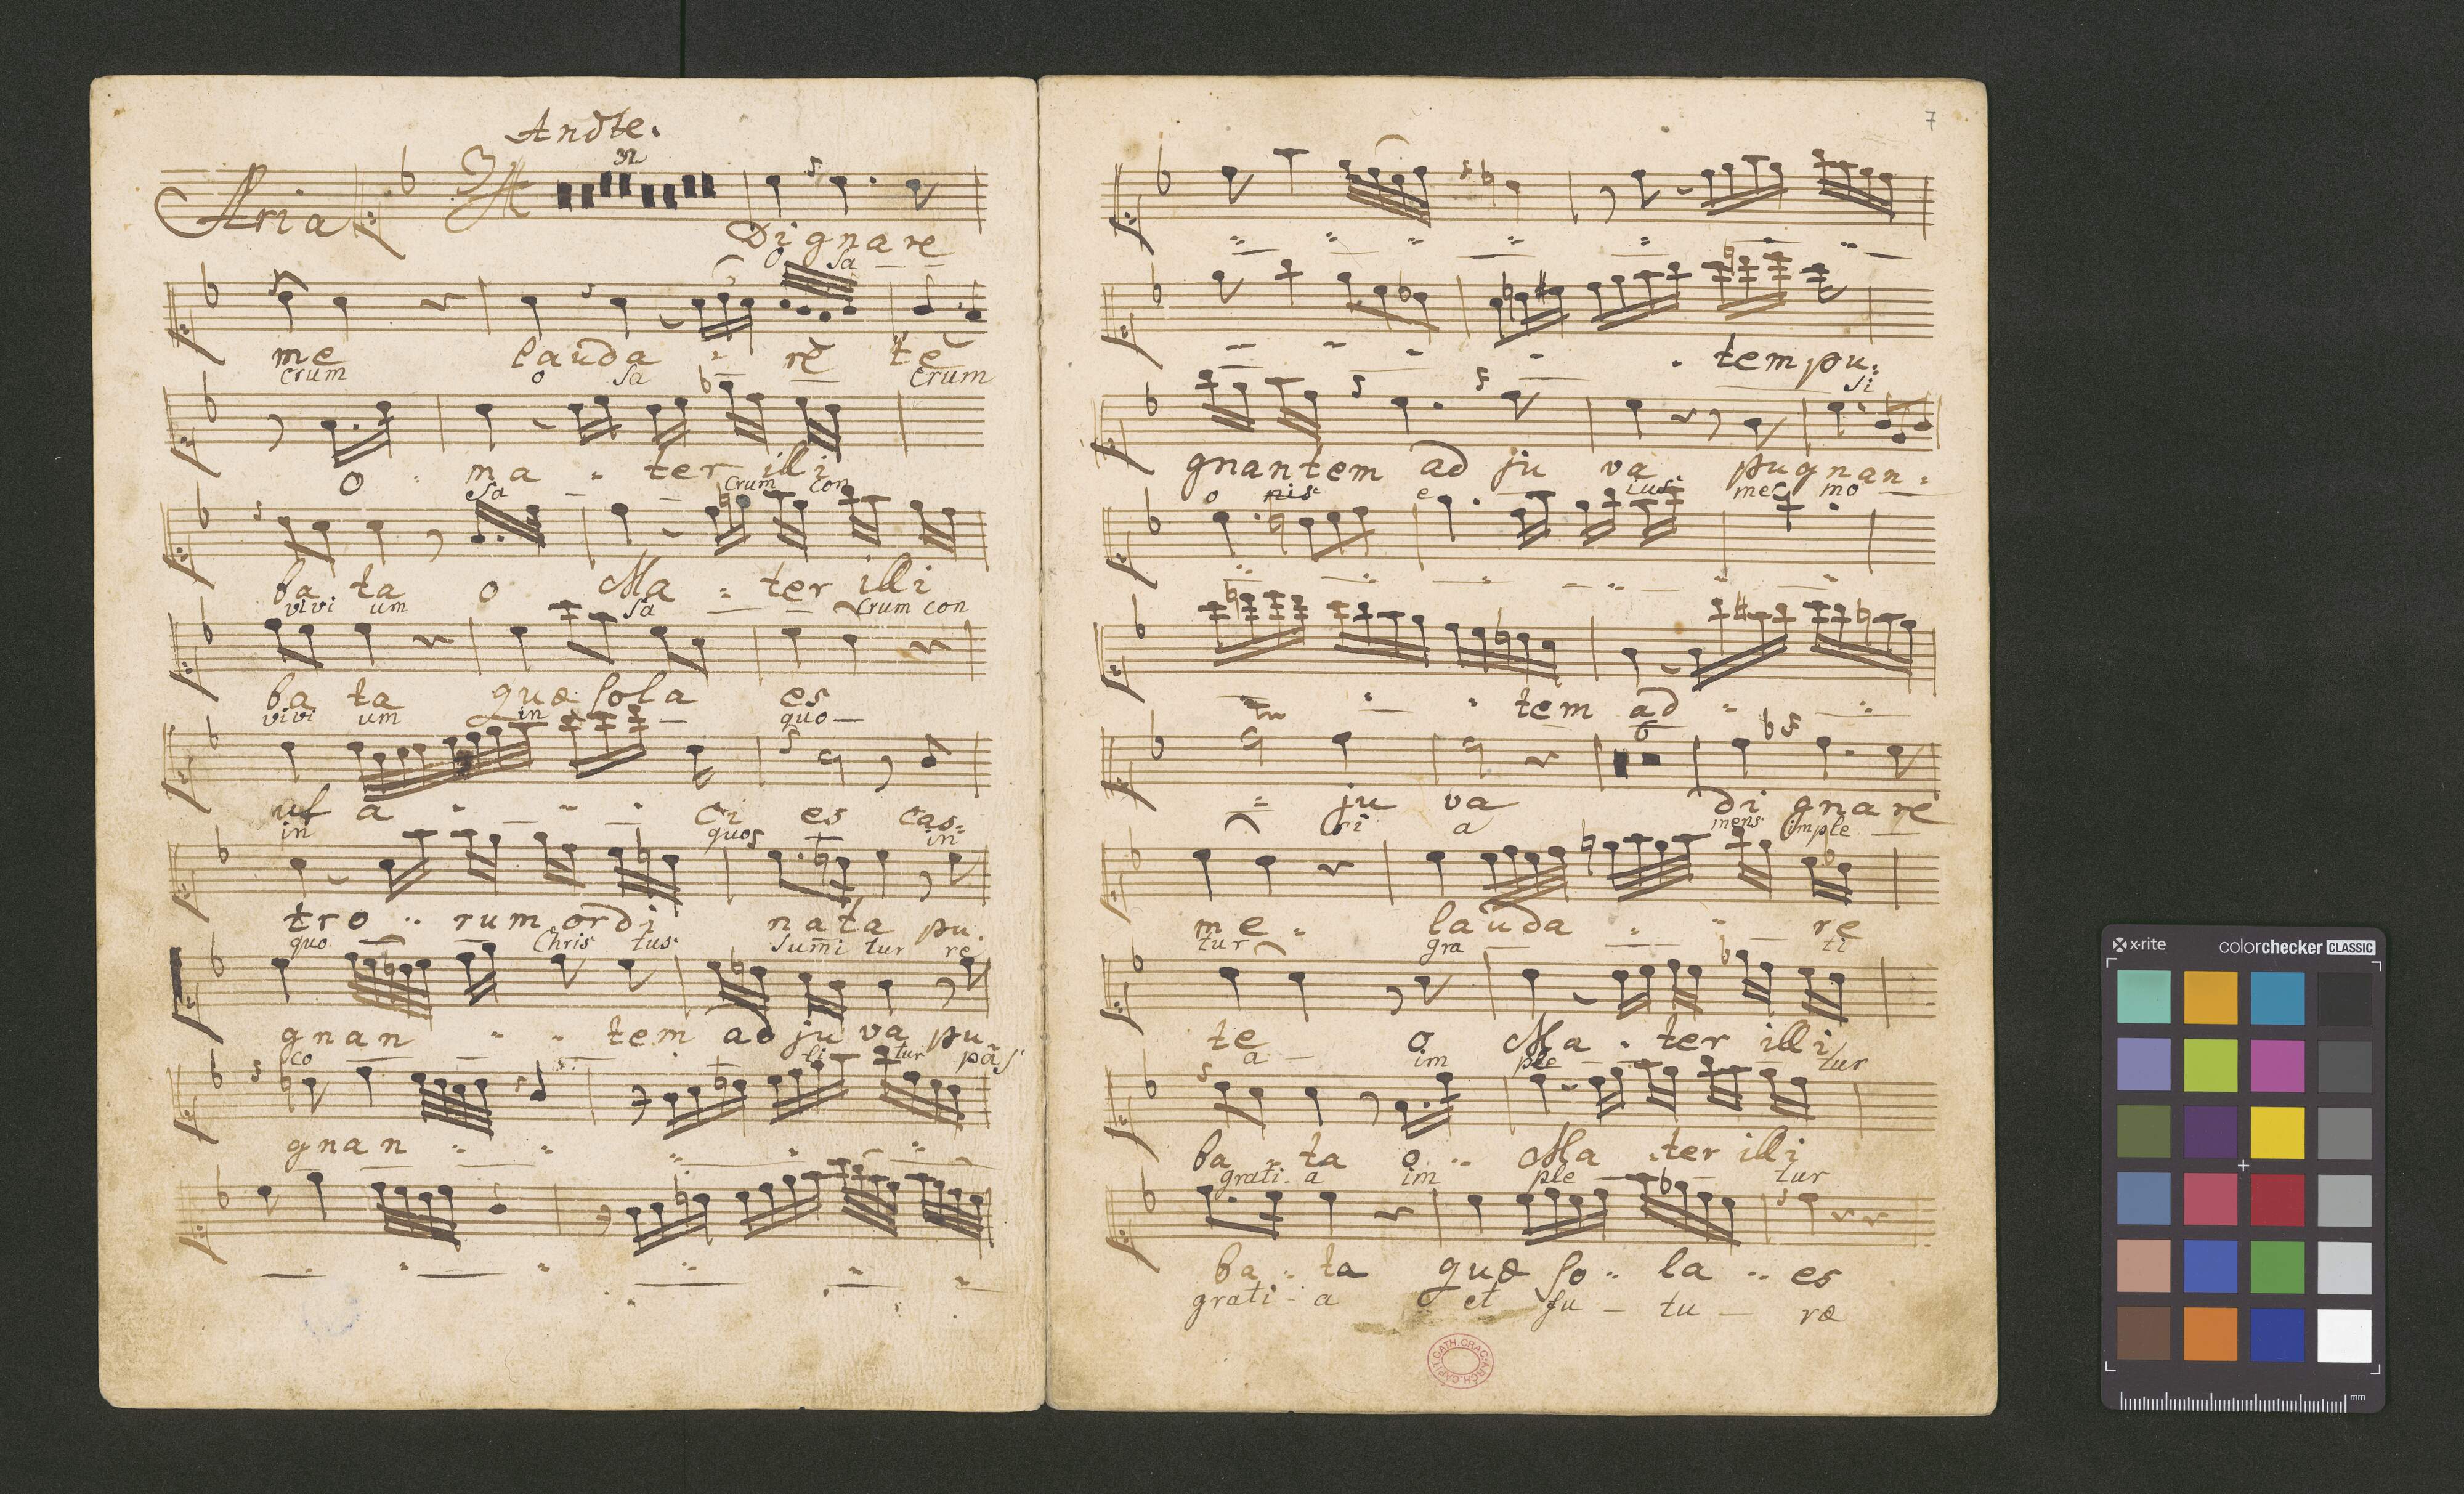 Andte.
32
Aria
Dignare
O Sa
me lauda re te
crum o Sa crum
O ma ter illi
Sa crum con
ba ta O Ma ter illi
vivi um Sa crum con
ba ta quæ sola es
vivi um in quo
uf a ci es cas
in quos in
tro rum ordi nata pu
quo Chris tus Sumi tur re
gnan tem ad ju va pu
co li tur pas
gnan
7
tem pu
si
gnantem ad ju va pugnan
o nis e ius mes mo
tem ad
6
ju va di gnare
ri a mens imple
me lauda re
tur gra ti
te O Ma ter illi
a im ple tur
ba ta o Ma ter illi
grati a im ple tur
ba ta quæ so la es
grati a et fu tu ræ
CAPIT. CATH. CRAC. ARCH.
x-rite colorchecker CLASSIC
mm